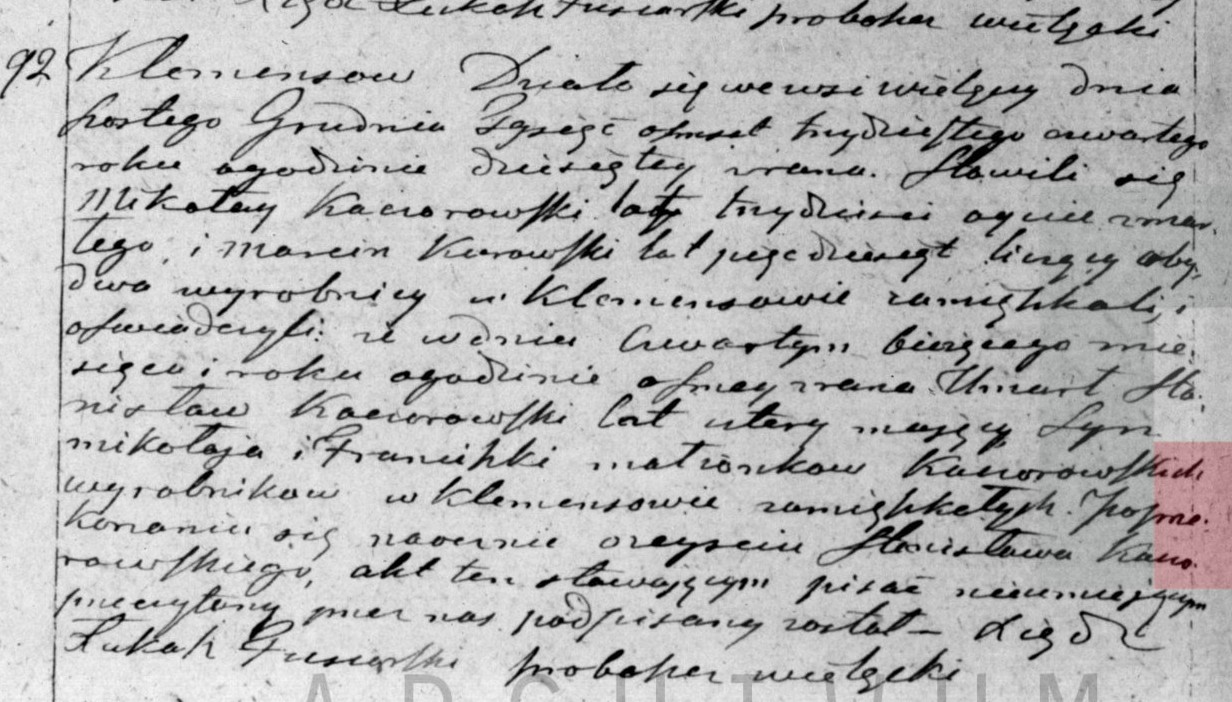 Xiądz Łukasz Fusiarski proboszcz wielgski
92 Klemensow Działo się we wsi Wielgiy dnia
szostego Grudnia Tysiąc osmset trzydziestego czwartego
roku ogodzinie dziesiątey zrana. Stawili się
Mikołay Kaczorowski lat trzydzieści oyciec zmar
łego, i Marcin Kurowski lat pięcdziesiąt liczący oby,
dwa wyrobnicy w Klemensowie zamięszkali, i
oswiadczyli: że wdniu Czwartym bieżącego mie,
siąca i roku ogodzinie osmey zrana Umarł Sta,
nisław Kaczorowski lat cztery maiący Syn
Mikołaja i Franciszki małżonkow Kaczorowskich
wyrobnikow w Klemensowie zamięszkałych. Poprze,
konaniu się naocznie ozeysciu Stanisława Kaczo,
rowskiego, akt ten stawaiącym pisać nieumieiącym
przeczytany przez nas podpisany został – Xiądz
Łukasz Fusiarski proboszcz wielgski
ARCHIWUM